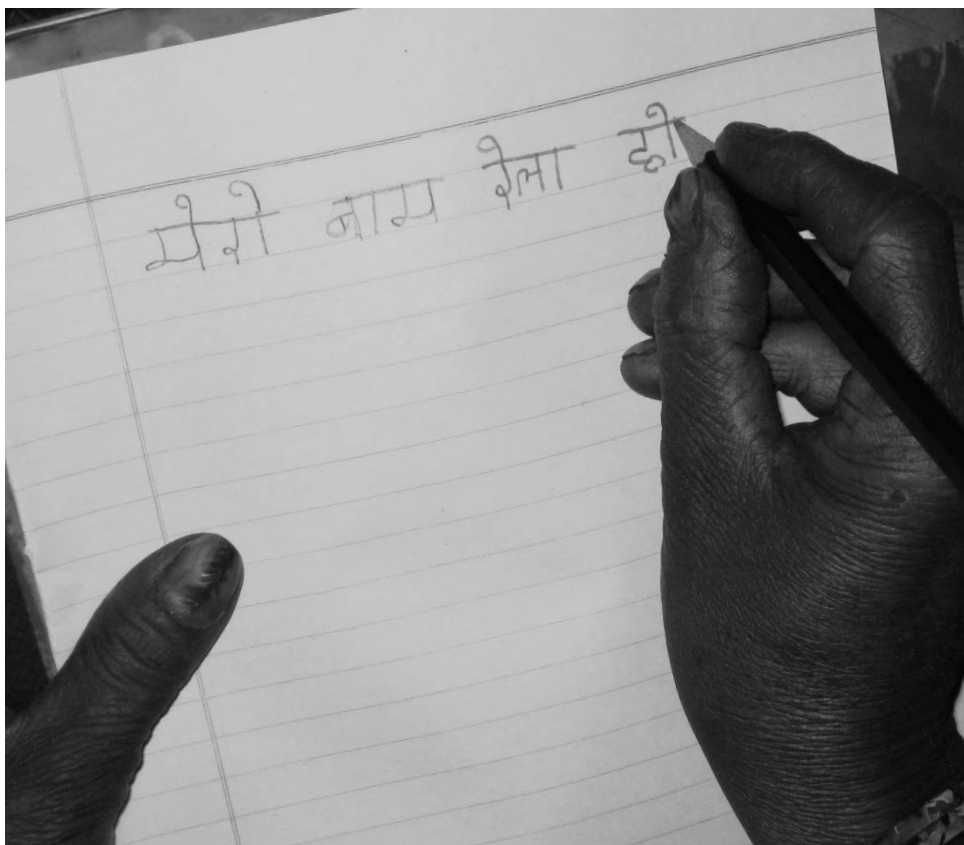 मेरो नाम रेला हो